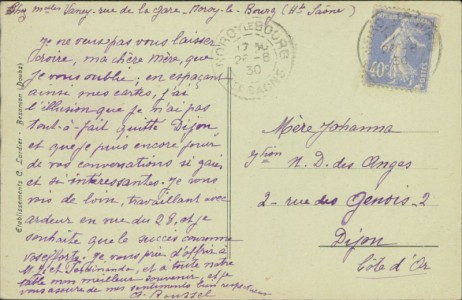 Chez Melles Vaney - rue de la Gare - Noroy-le-Bourg (Hte Saône)
Je ne veux pas vous laisser
croire, ma chère Mère, que
je vous oublie; en espaçant
ainsi mes cartes, j'ai
l'illusion que je n'ai pas
tout-à-fait quitté Dijon,
et que je puis encore jouir
de vos conversations si gaies
et si intéressantes. Je vous
vois de loin, travaillant avec
ardeur en vue du 28, et je
souhaite que le succès couronne
vos efforts. Je vous prie d'offrir à
et Ferdinande, et à toute notre
table mon meilleur souvenir, et je
vous assure de mes sentiments bien respectueux
Roussel
Etablissements C. Lardier - Besançon (Doubs)
NOROY LE BOURG
17 30
25 - 8
30
HTE SAONE
40c
Mère Johanna
N. D. des Anges
2 - rue des Genois - 2
Dijon
Côte d'Or